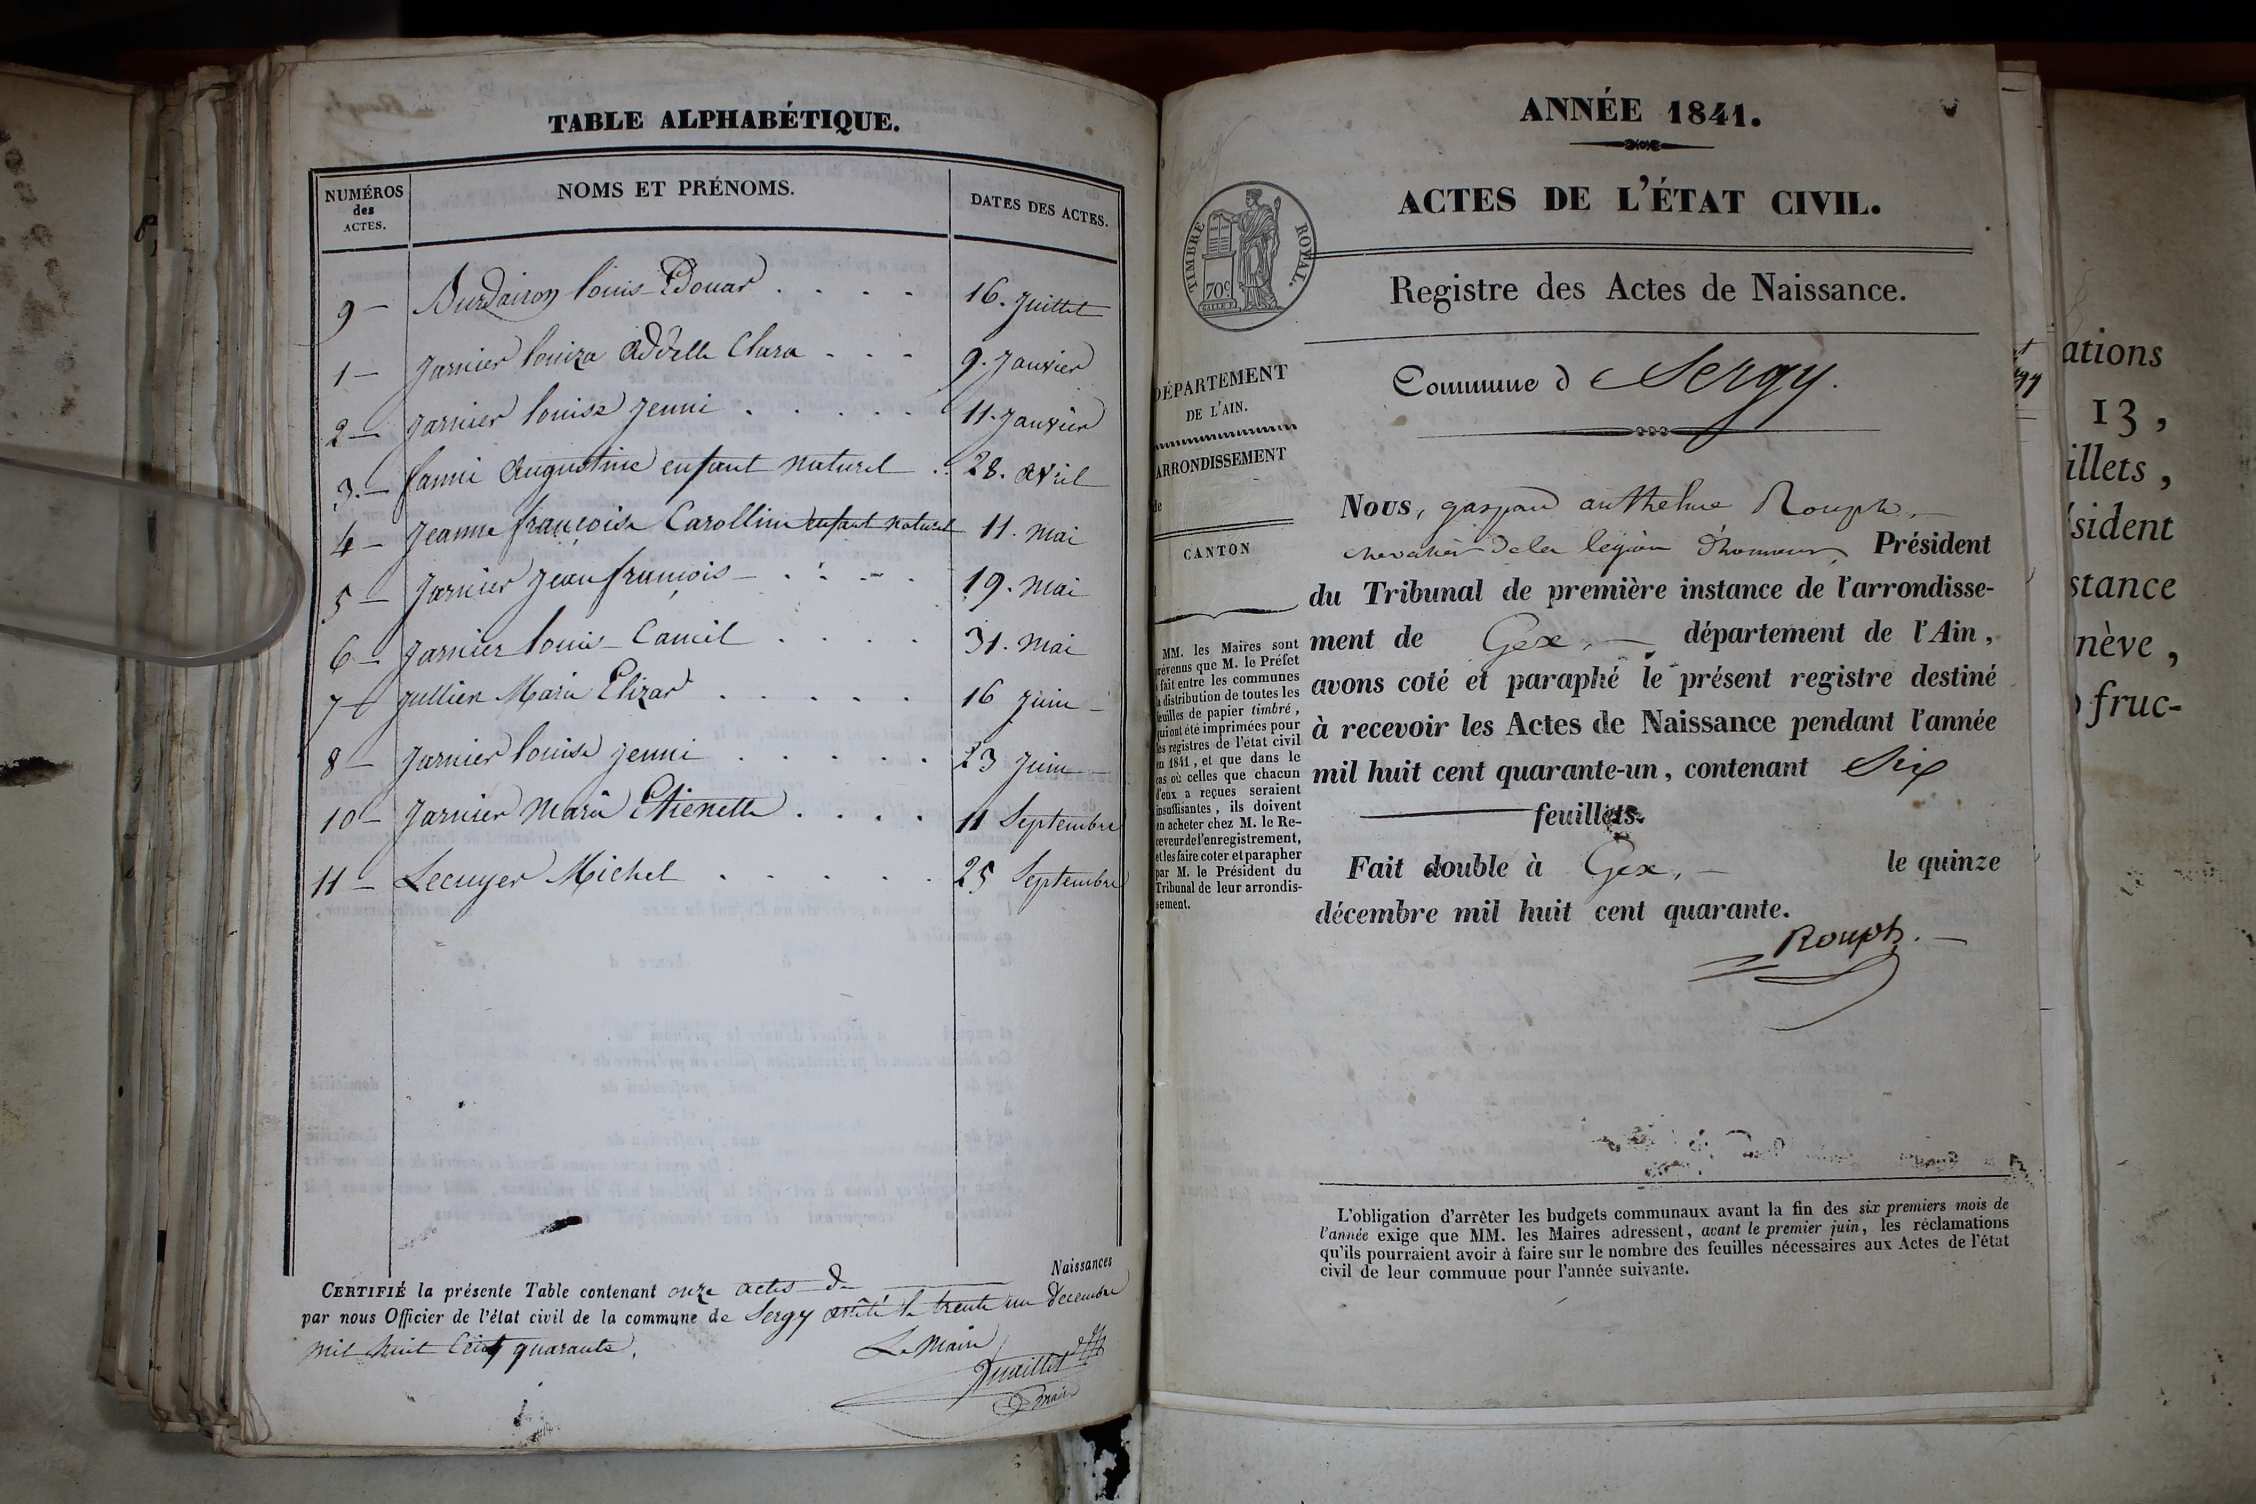 TABLE ALPHABÉTIQUE.
NUMÉROS des ACTES. NOMS ET PRÉNOMS. DATES DES ACTES.
9 — Burdairon Louis Edouar . . . . 16. Juillet
1 — Jarnier Louiza Addelle Clara . . . 9. Janvier
2 — Jarnier Louise Jenni . . . . . 11. Janvier
3. — fanni Augustine enfant naturel . . 28. Avril
4 — Jeanne françoise Carolline enfant naturel 11. Mai
5 — Jarnier Jean françois — . . . . 19. Mai
6 — Jarnier Louis Camil . . . . 31. Mai
7 — Jullien Maria Elizar . . . . . 16 Juin —
8 — Jarnier Louise Jenni . . . . . 23 Juin —
10 — Jarnier Maria Etienette . . . . 11 Septembre
11 — Lecuyer Michel . . . . . 25 Septembre
Naissances
CERTIFIÉ la présente Table contenant onze actes de
par nous Officier de l'état civil de la commune de Sergy arrêté le trente un decembre
mil huit Cent quarante.
Le Maire
maire
ANNÉE 1841.
ACTES DE L'ÉTAT CIVIL.
TIMBRE ROYAL.
70c
Registre des Actes de Naissance.
Commune d Sergy.
DÉPARTEMENT
DE L'AIN.
ARRONDISSEMENT
de
CANTON
MM. les Maires sont
prévenus que M. le Préfet
a fait entre les communes
la distribution de toutes les
feuilles de papier timbré,
qui ont été imprimées pour
les registres de l'état civil
en 1841, et que dans le
cas où celles que chacun
d'eux a reçues seraient
insuffisantes, ils doivent
en acheter chez M. le Re-
ceveur de l'enregistrement,
et les faire coter et parapher
par M. le Président du
Tribunal de leur arrondis-
sement.
Nous, gaspard anthelme Rouph,
chevalier de la legion d'honneur, Président
du Tribunal de première instance de l'arrondisse-
ment de Gex, — département de l'Ain,
avons coté et paraphé le présent registre destiné
à recevoir les Actes de Naissance pendant l'année
mil huit cent quarante-un, contenant Six
feuillets.
Fait double à Gex, — le quinze
décembre mil huit cent quarante.
Rouph. —
L'obligation d'arrêter les budgets communaux avant la fin des six premiers mois de
l'année exige que MM. les Maires adressent, avant le premier juin, les réclamations
qu'ils pourraient avoir à faire sur le nombre des feuilles nécessaires aux Actes de l'état
civil de leur commune pour l'année suivante.
ations
13,
illets,
sident
stance
nève,
fruc-